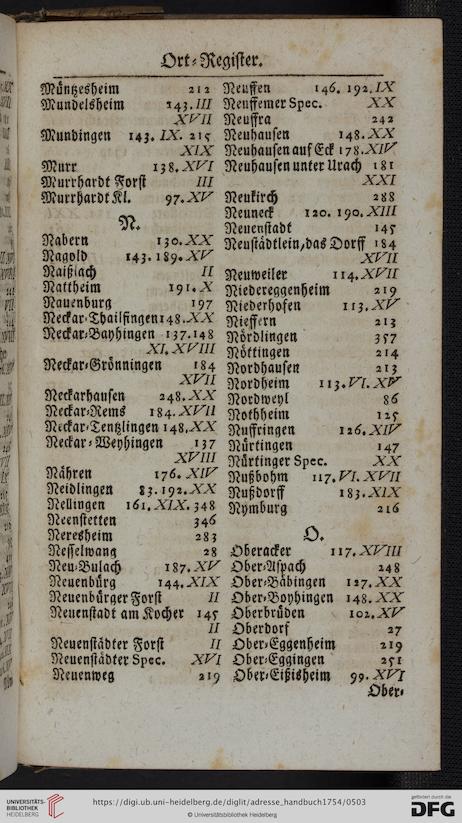 Ort-Register.
Müntzesheim 212
Mundelsheim 243. III
XVII
Mundingen 143. IX. 215
XIX
Murr 138. XVI
Murrhardt Forst III
Murrhardt Kl. 97. XV
N.
Nabern 130. XX
Nagold 143. 189. XV
Naißlach II
Nattheim 191. X
Nauenburg 197
Neckar-Thailfingen 148. XX
Neckar-Bayhingen 137. 148
XI. XVIII
Neckar-Grönningen 184
XVII
Neckarhausen 248. XX
Neckar-Rems 184. XVII
Neckar-Tentzlingen 148. XX
Neckar-Weyhingen 137
XVIII
Nähren 176. XIV
Neidlingen 83. 192. XX
Nellingen 161. XIX. 348
Neenstetten 346
Neresheim 283
Nesselwang 28
Neu-Bulach 187. XV
Neuenbürg 144. XIX
Neuenbürger Forst II
Neuenstadt am Kocher 145
II
Neuenstädter Forst II
Neuenstädter Spec. XVI
Neuenweg 219
Neuffen 146. 192. IX
Neuffemer Spec. XX
Neuffra 242
Neuhausen 148. XX
Neuhausen auf Eck 178. XIV
Neuhausen unter Urach 181
XXI
Neukirch 288
Neuneck 120. 190. XIII
Neuenstadt 145
Neustädtlein, das Dorff 184
XVII
Neuweiler 114. XVII
Niedereggenheim 219
Niederhofen 113. XV
Nieffern 213
Nördlingen 357
Nöttingen 214
Nordhausen 213
Nordheim 113. VI. XV
Nordweyl 86
Nothheim 125
Nuffringen 126. XIV
Nürtingen 147
Nürtinger Spec. XX
Nußbohm 117. VI. XVII
Nußdorff 183. XIX
Nymburg 216
O.
Oberacker 117. XVIII
Ober-Aspach 248
Ober-Bäbingen 127. XX
Ober-Boyhingen 148. XX
Oberbrüden 102. XV
Oberdorf 27
Ober-Eggenheim 219
Ober-Eggingen 251
Ober-Eißisheim 99. XVI
Ober-
UNIVERSITÄTS-
BIBLIOTHEK
HEIDELBERG
https://digi.ub.uni-heidelberg.de/diglit/adresse_handbuch1754/0503
© Universitätsbibliothek Heidelberg
gefördert durch die
DFG